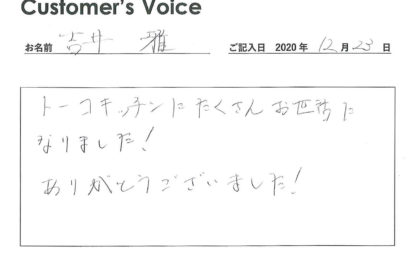 Customer's Voice
お名前 吉井 雅 ご記入日 2020 年 12 月 23 日
トーコキッチンにたくさんお世話に
なりました!
ありがとうございました!